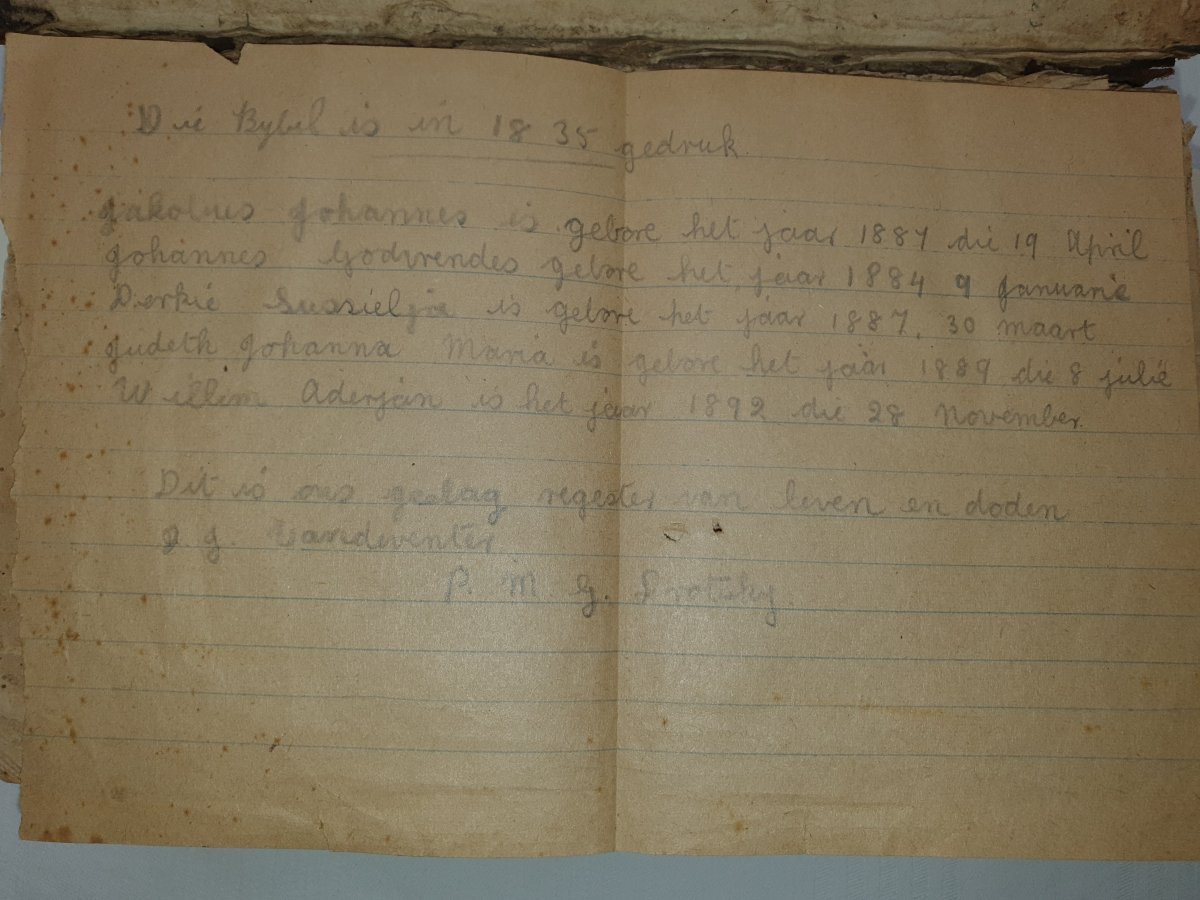 Die Bybel is in 1835 gedruk.
Jakobus Johannes is gebore het jaar 1881 die 19 April
Johannes Godvrendes gebore het jaar 1884 9 Januarie
Derkie is gebore het jaar 1887. 30 maart
Judeth Johanna Maria is gebore het jaar 1889 die 8 julie
Willem Aderjan is het jaar 1892 die 28 November.
Dit is ons geslag regester van leven en doden
J. J. Vandeventer
P. M. G.